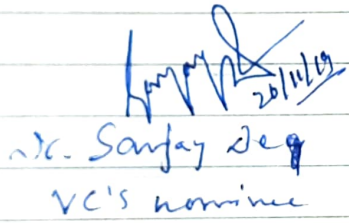 20/11/19
Dr. Sanjay Dey
VC's nominee